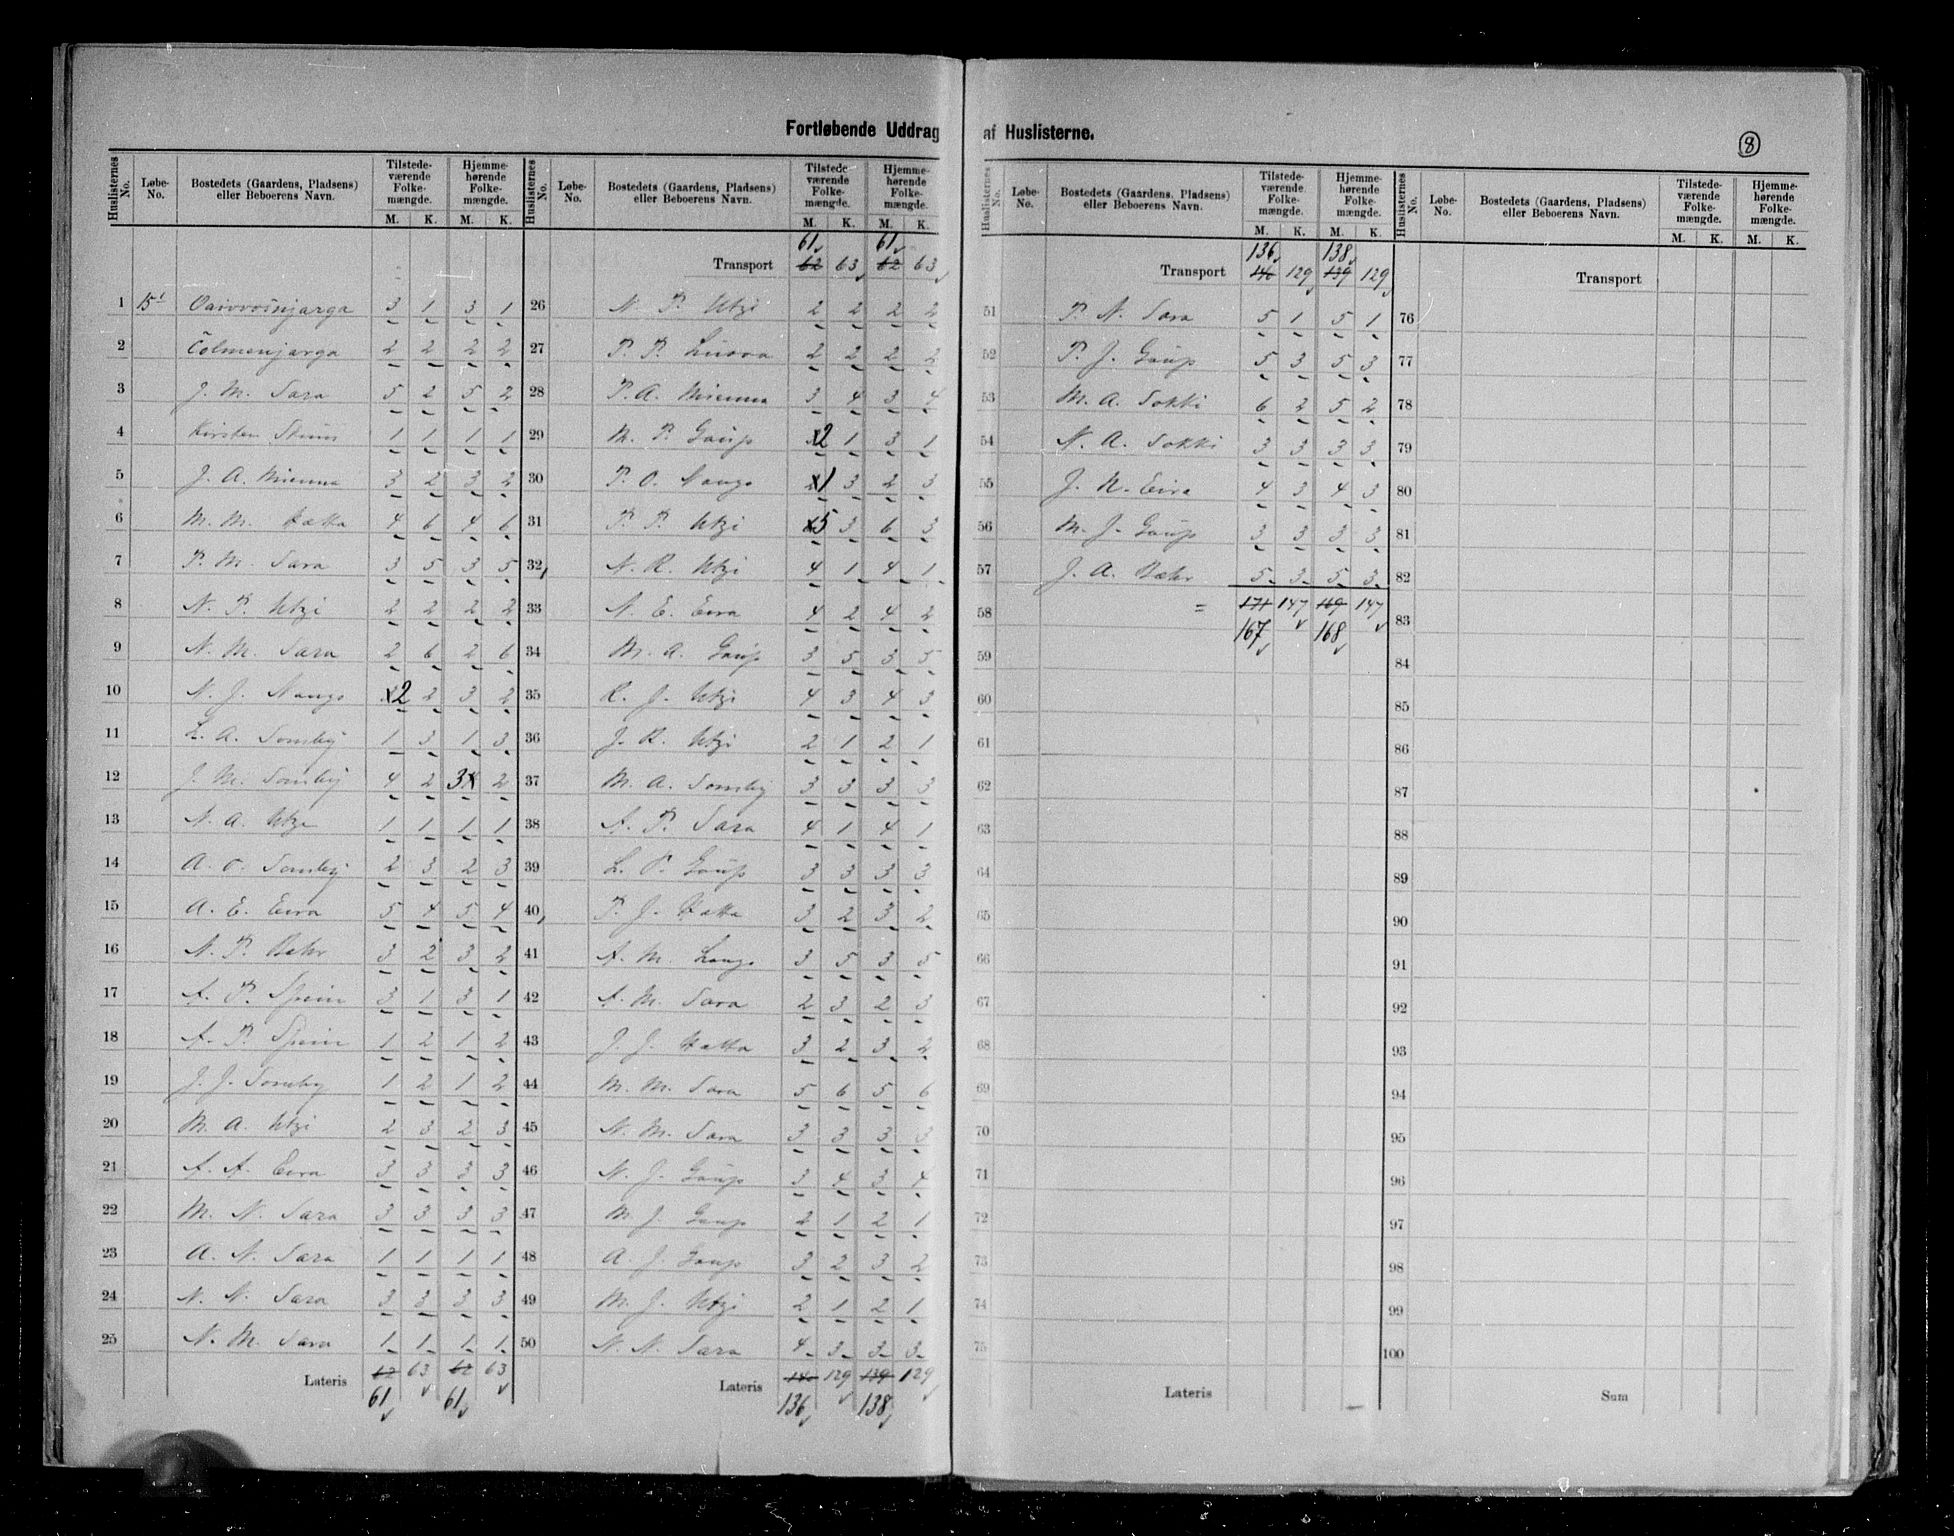 Fortløbende Uddrag af Huslisterne.
8
Huslisternes No. Løbe-No. Bostedets (Gaardens, Pladsens) eller Beboerens Navn. Tilstedeværende Folkemængde. M. K. Hjemmehørende Folkemængde. M. K.
1 15 Oaivvošnjarga 3 1 3 1
2 Čolmenjarga 2 2 2 2
3 J. M. Sara 5 2 5 2
4 Kirsten 1 1 1 1
5 J. A. Mienna 3 2 3 2
6 M. M. Hætta 4 6 4 6
7 P. M. Sara 3 5 3 5
8 N. P. Utzi 2 2 2 2
9 N. M. Sara 2 6 2 6
10 N. J. Nango 2 2 3 2
11 L. A. Somby 1 3 1 3
12 J. M. Somby 4 2 3 2
13 N. A. Utze 1 1 1 1
14 A. O. Somby 2 3 2 3
15 A. E. Eira 5 4 5 4
16 N. P. Bæhr 3 2 3 2
17 A. P. Spein 3 1 3 1
18 A. P. Spein 1 2 1 2
19 J. J. Somby 1 2 1 2
20 M. A. Utzi 2 3 2 3
21 A. A. Eira 3 3 3 3
22 M. N. Sara 3 3 3 3
23 A. N. Sara 1 1 1 1
24 N. N. Sara 3 3 3 3
25 N. M. Sara 1 1 1 1
Lateris 62 63 62 63
61 61
Huslisternes No. Løbe-No. Bostedets (Gaardens, Pladsens) eller Beboerens Navn. Tilstedeværende Folkemængde. M. K. Hjemmehørende Folkemængde. M. K.
61 61
Transport 62 63 62 63
26 N. P. Utzi 2 2 2 2
27 P. P. Luova 2 2 2 2
28 P. A. Mienna 3 4 3 4
29 M. P. Gaup 2 1 3 1
30 P. O. Nango 1 3 2 3
31 P. P. Utzi 5 3 6 3
32 N. R. Utzi 4 1 4 1
33 N. E. Eira 4 2 4 2
34 M. A. Gaup 3 5 3 5
35 R. J. Utzi 4 3 4 3
36 J. R. Utzi 2 1 2 1
37 M. A. Somby 3 3 3 3
38 A. P. Sara 4 1 4 1
39 L. P. Gaup 3 3 3 3
40 P. J. Hætta 3 2 3 2
41 A. M. Lango 3 5 3 5
42 A. M. Sara 2 3 2 3
43 J. J. Hætta 3 2 3 2
44 M. M. Sara 5 6 5 6
45 N. M. Sara 3 3 3 3
46 N. J. Gaup 3 4 3 4
47 M. J. Gaup 2 1 2 1
48 A. J. Gaup 3 2 3 2
49 M. J. Utzi 2 1 2 1
50 N. N. Sara 4 3 3 3
Lateris 140 129 139 129
136 138
Huslisternes No. Løbe-No. Bostedets (Gaardens, Pladsens) eller Beboerens Navn. Tilstedeværende Folkemængde. M. K. Hjemmehørende Folkemængde. M. K.
136 138
Transport 140 129 139 129
51 P. N. Sara 5 1 5 1
52 P. J. Gaup 5 3 5 3
53 M. A. Sokki 6 2 5 2
54 N. A. Sokki 3 3 3 3
55 J. N. Eira 4 3 4 3
56 M. J. Gaup 3 3 3 3
57 J. A. Bæhr 5 3 5 3
58 = 171 147 169 147
167 168
59
60
61
62
63
64
65
66
67
68
69
70
71
72
73
74
75
Lateris
Huslisternes No. Løbe-No. Bostedets (Gaardens, Pladsens) eller Beboerens Navn. Tilstedeværende Folkemængde. M. K. Hjemmehørende Folkemængde. M. K.
Transport
76
77
78
79
80
81
82
83
84
85
86
87
88
89
90
91
92
93
94
95
96
97
98
99
100
Sum